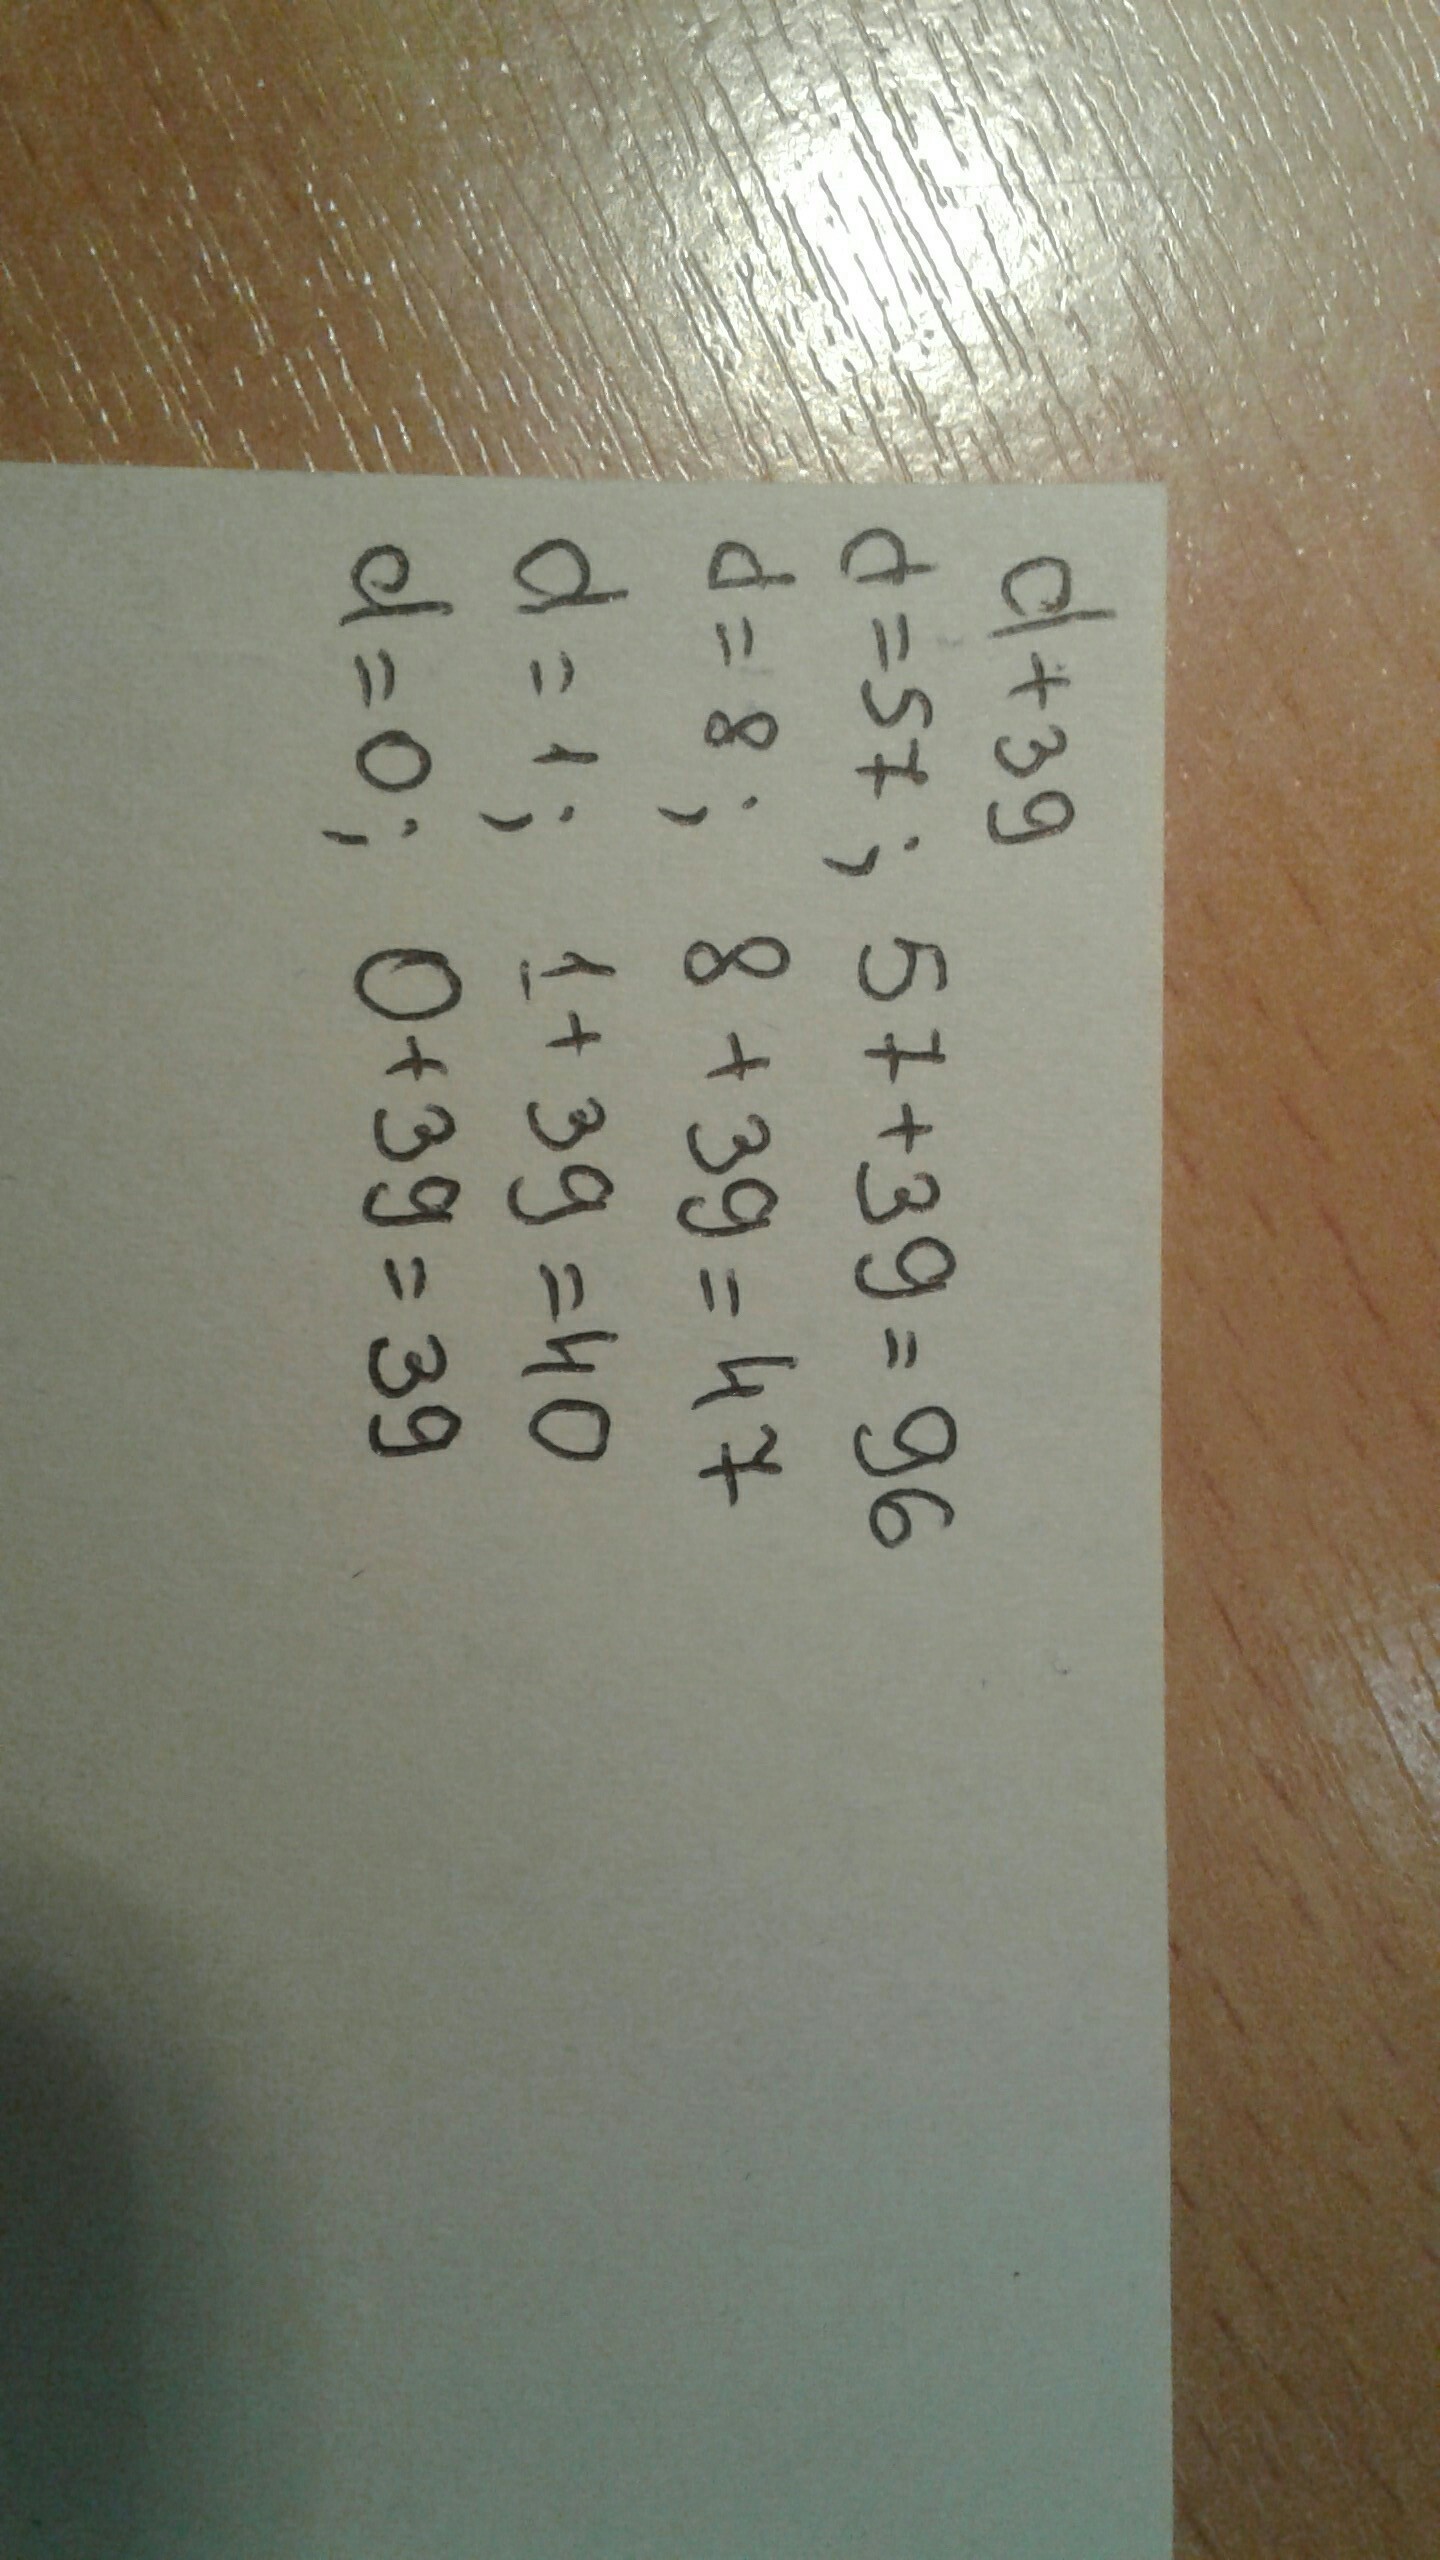 d+39
d=57; 57+39=96
d=8; 8+39=47
d=1; 1+39=40
d=0; 0+39=39